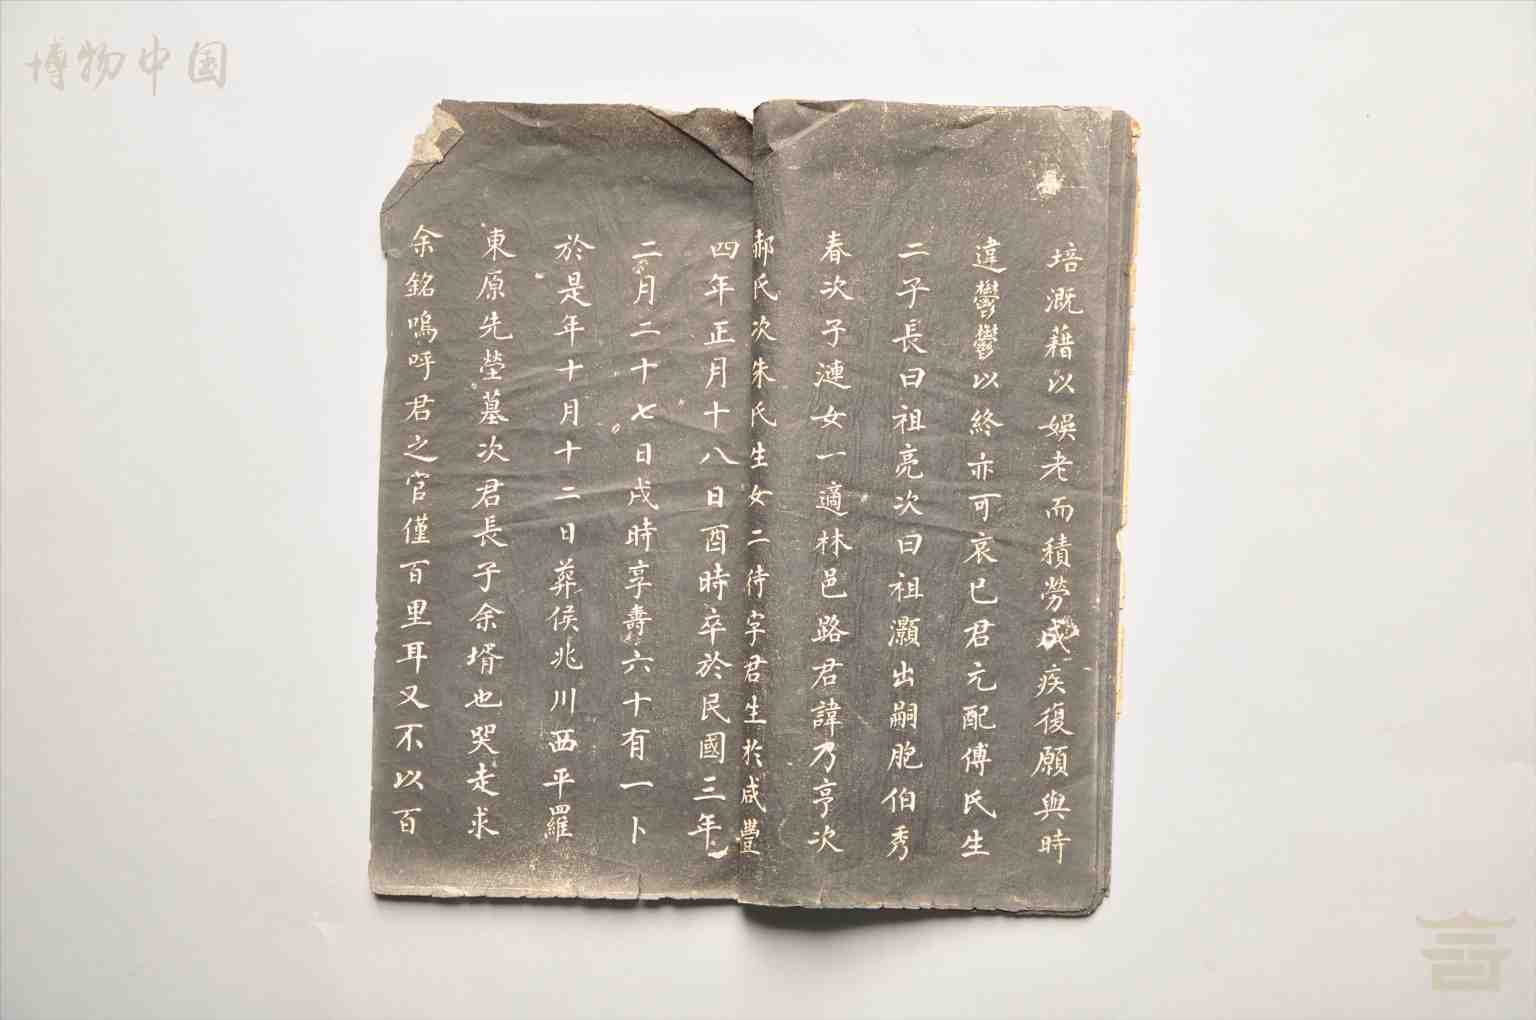 博物中国
培溉藉以娛老而積勞成疾復願與時
違鬱鬱以終亦可哀已君元配傅氏生
二子長曰祖亮次曰祖灝出嗣胞伯秀
春次子漣女一適林邑路君諱乃亨次
郝氏次朱氏生女二待字君生於咸豐
四年正月十八日酉時卒於民國三年
二月二十七日戌時享壽六十有一卜
於是年十月十二日葬侯兆川西平羅
東原先塋墓次君長子余壻也哭走求
余銘嗚呼君之官僅百里耳又不以百